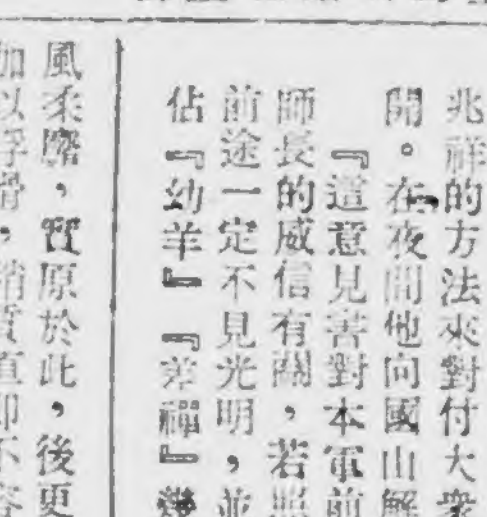 兆祥的方法來對付大衆
開。在夜間他向國山解
『這意見書對本軍前
師長的威信有關，若照
前途一定不見光明，並
佔『幼羊』『差禪』幾
風柔靡，實原於此，後更
加以浮滑，消質直却不容